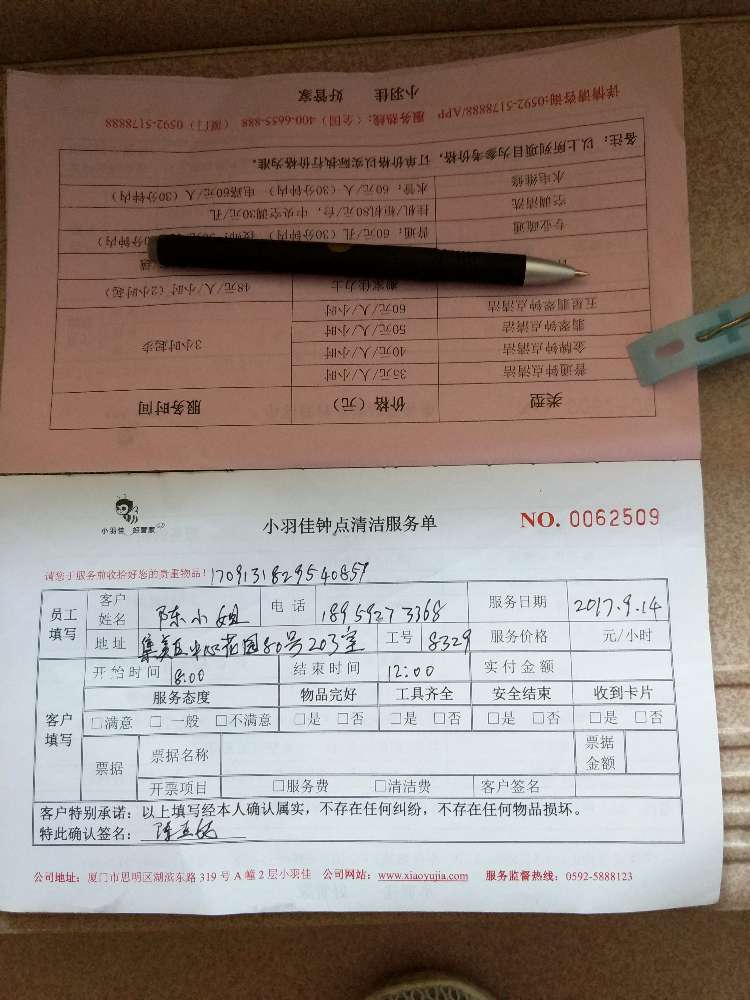 小羽佳 好管家
详情请咨询:0592-5178888/APP 服务热线：(全国) 400-6655-888 (厦门) 0592-5178888
备注：以上所列项目为参考价格，订单价格以实际执行价格为准。
水电维修 水管：60元/人 (30分钟内) 电路60元/人 (30分钟内)
空调清洗 挂机/柜机80元/台，中央空调30元/孔
专业疏通 普通：60元/孔 (30分钟内)
搬家佳力士 48元/人/小时 (2小时起)
五星翡翠钟点清洁 60元/人/小时
翡翠钟点清洁 50元/人/小时
金牌钟点清洁 40元/人/小时
普通钟点清洁 35元/人/小时
3小时起步
类型 价格 (元) 服务时间
小羽佳 好管家
小羽佳钟点清洁服务单
NO. 0062509
请您于服务前收拾好您的贵重物品！ 1709131829540859
员工填写 客户姓名 陈小姐 电话 18959273368 服务日期 2017.9.14
地址 集美区中心花园80号203室 工号 8329 服务价格 元/小时
客户填写 开始时间 8:00 结束时间 12:00 实付金额
服务态度 物品完好 工具齐全 安全结束 收到卡片
□满意 □一般 □不满意 □是 □否 □是 □否 □是 □否 □是 □否
票据 票据名称 票据金额
开票项目 □服务费 □清洁费 客户签名
客户特别承诺：以上填写经本人确认属实，不存在任何纠纷，不存在任何物品损坏。
特此确认签名：
公司地址：厦门市思明区湖滨东路 319 号 A 幢 2 层小羽佳 公司网站：www.xiaoyujia.com 服务监督热线：0592-5888123